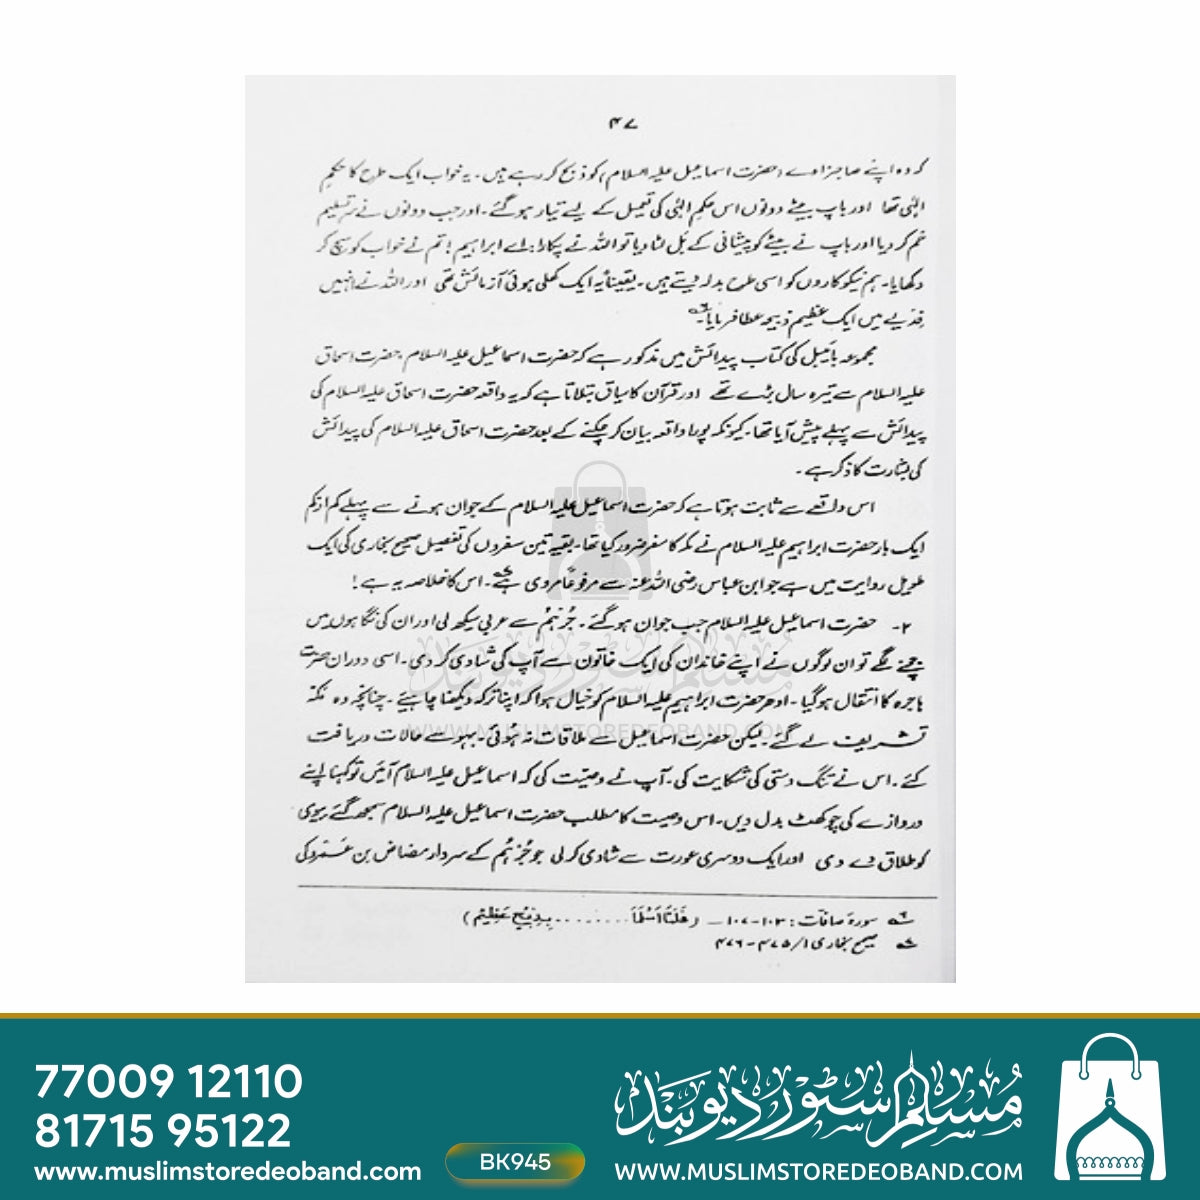 ۴۷
کہ وہ اپنے صاحبزادے (حضرت اسماعیل علیہ السلام) کو ذبح کر رہے ہیں۔ یہ خواب ایک طرح کا حکمِ
الہٰی تھا اور باپ بیٹے دونوں اس حکمِ الہٰی کی تعمیل کے لیے تیار ہو گئے۔ اور جب دونوں نے سرِ تسلیم
خم کر دیا اور باپ نے بیٹے کو پیشانی کے بَل لٹا دیا تو اللہ نے پکارا: اے ابراہیم! تم نے خواب کو سچ کر
دکھایا۔ ہم نیکوکاروں کو اسی طرح بدلہ دیتے ہیں۔ یقیناً یہ ایک کھلی ہوئی آزمائش تھی اور اللہ نے انہیں
فدیے میں ایک عظیم ذبیحہ عطا فرمایا۔ ؂۶
مجموعہ بائیبل کی کتاب پیدائش میں مذکور ہے کہ حضرت اسماعیل علیہ السلام، حضرت اسحاق
علیہ السلام سے تیرہ سال بڑے تھے اور قرآن کا سیاق بتلاتا ہے کہ یہ واقعہ حضرت اسحاق علیہ السلام کی
پیدائش سے پہلے پیش آیا تھا۔ کیونکہ پورا واقعہ بیان کر چکنے کے بعد حضرت اسحاق علیہ السلام کی پیدائش
کی بشارت کا ذکر ہے۔
اس واقعے سے ثابت ہوتا ہے کہ حضرت اسماعیل علیہ السلام کے جوان ہونے سے پہلے کم از کم
ایک بار حضرت ابراہیم علیہ السلام نے مکہ کا سفر ضرور کیا تھا۔ بقیہ تین سفروں کی تفصیل صحیح بخاری کی ایک
طویل روایت میں ہے جو ابن عباس رضی اللہ عنہ سے مرفوعاً مروی ہے۔ اس کا خلاصہ یہ ہے!
۲۔ حضرت اسماعیل علیہ السلام جب جوان ہو گئے۔ جُرْہُم سے عربی سیکھ لی اور ان کی نگاہوں میں
جچنے لگے تو ان لوگوں نے اپنے خاندان کی ایک خاتون سے آپ کی شادی کر دی۔ اسی دوران حضرت
ہاجرہ کا انتقال ہو گیا۔ ادھر حضرت ابراہیم علیہ السلام کو خیال ہوا کہ اپنا ترکہ دیکھنا چاہیئے۔ چنانچہ وہ مکہ
تشریف لے گئے۔ لیکن حضرت اسماعیل سے ملاقات نہ ہوئی۔ بہو سے حالات دریافت
کئے۔ اس نے تنگ دستی کی شکایت کی۔ آپ نے وصیت کی کہ اسماعیل علیہ السلام آئیں تو کہنا اپنے
دروازے کی چوکھٹ بدل دیں۔ اس وصیت کا مطلب حضرت اسماعیل علیہ السلام سمجھ گئے بیوی
کو طلاق دے دی اور ایک دوسری عورت سے شادی کر لی جو جُرْہُم کے سردار مضاض بن عَمرو کی
؂۶ سورہ صافات: ۱۰۳-۱۰۷ (فَلَمَّا اَسْلَمَا ........ بِذِبْحٍ عَظِیْمٍ)
صحیح بخاری ۱/۴۷۵-۴۷۶
مسلم سٹور دیوبند
WWW.MUSLIMSTOREDEOBAND.COM
77009 12110
81715 95122
www.muslimstoredeoband.com
BK945
مسلم سٹور دیوبند
WWW.MUSLIMSTOREDEOBAND.COM